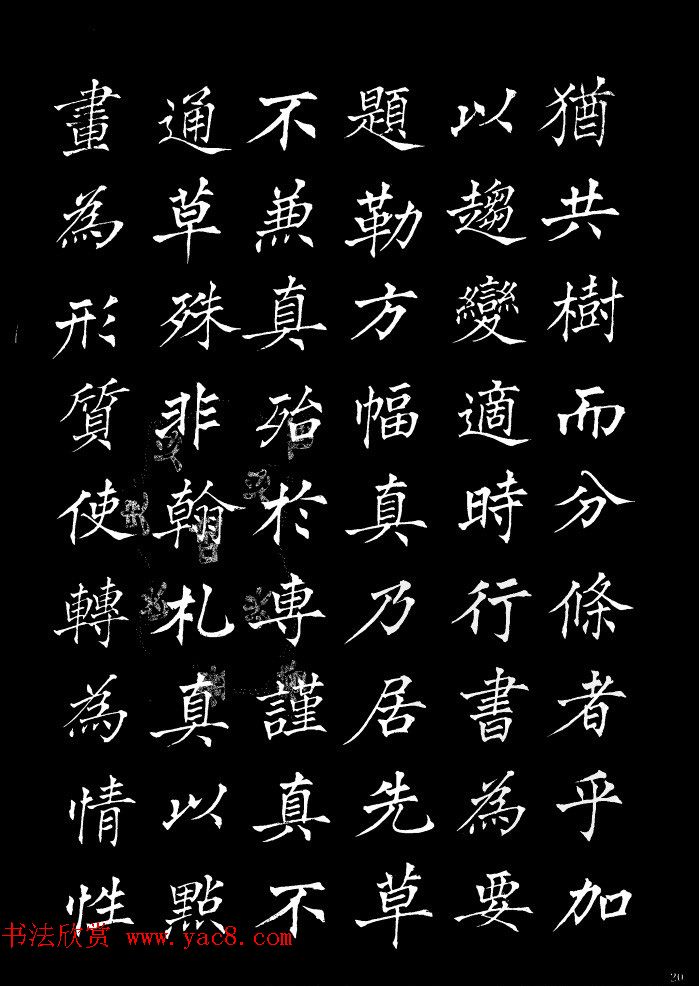 猶共樹而分條者乎加
以趨變適時行書為要
題勒方幅真乃居先草
不兼真殆於專謹真不
通草殊非翰札真以點
畫為形質使轉為情性
书法欣赏 www.yac8.com
20